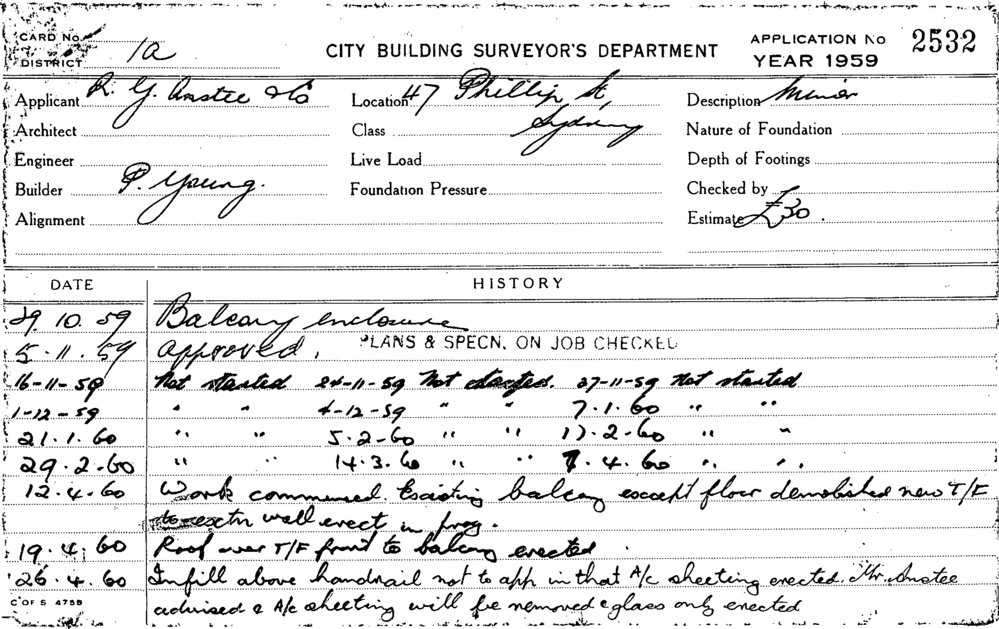 CARD No. 1a CITY BUILDING SURVEYOR'S DEPARTMENT APPLICATION No 2532
DISTRICT YEAR 1959
Applicant R. G. Anstee & Co Location 47 Phillip St, Description Minor
Architect Class Sydney Nature of Foundation
Engineer Live Load Depth of Footings
Builder P. Young. Foundation Pressure Checked by
Alignment Estimate £30.
DATE HISTORY
29.10.59 Balcony enclosure
5.11.59 Approved. PLANS & SPECN. ON JOB CHECKED
16-11-59 Not started 24-11-59 Not started. 27-11-59 Not started
1-12-59 " " 4-12-59 " " 7.1.60 " "
21.1.60 " " 5-2-60 " " 17-2-60 " "
29.2.60 " " 14.3.60 " " 7.4.60 " "
12.4.60 Work commenced. Existing balcony except floor demolished new T/F
to extn wall erect in prog.
19.4.60 Roof over T/F front to balcony erected.
26.4.60 Infill above handrail not to app in that A/c sheeting erected. Mr. Anstee
C OF S 4755 advised & A/c sheeting will be removed & glass only erected